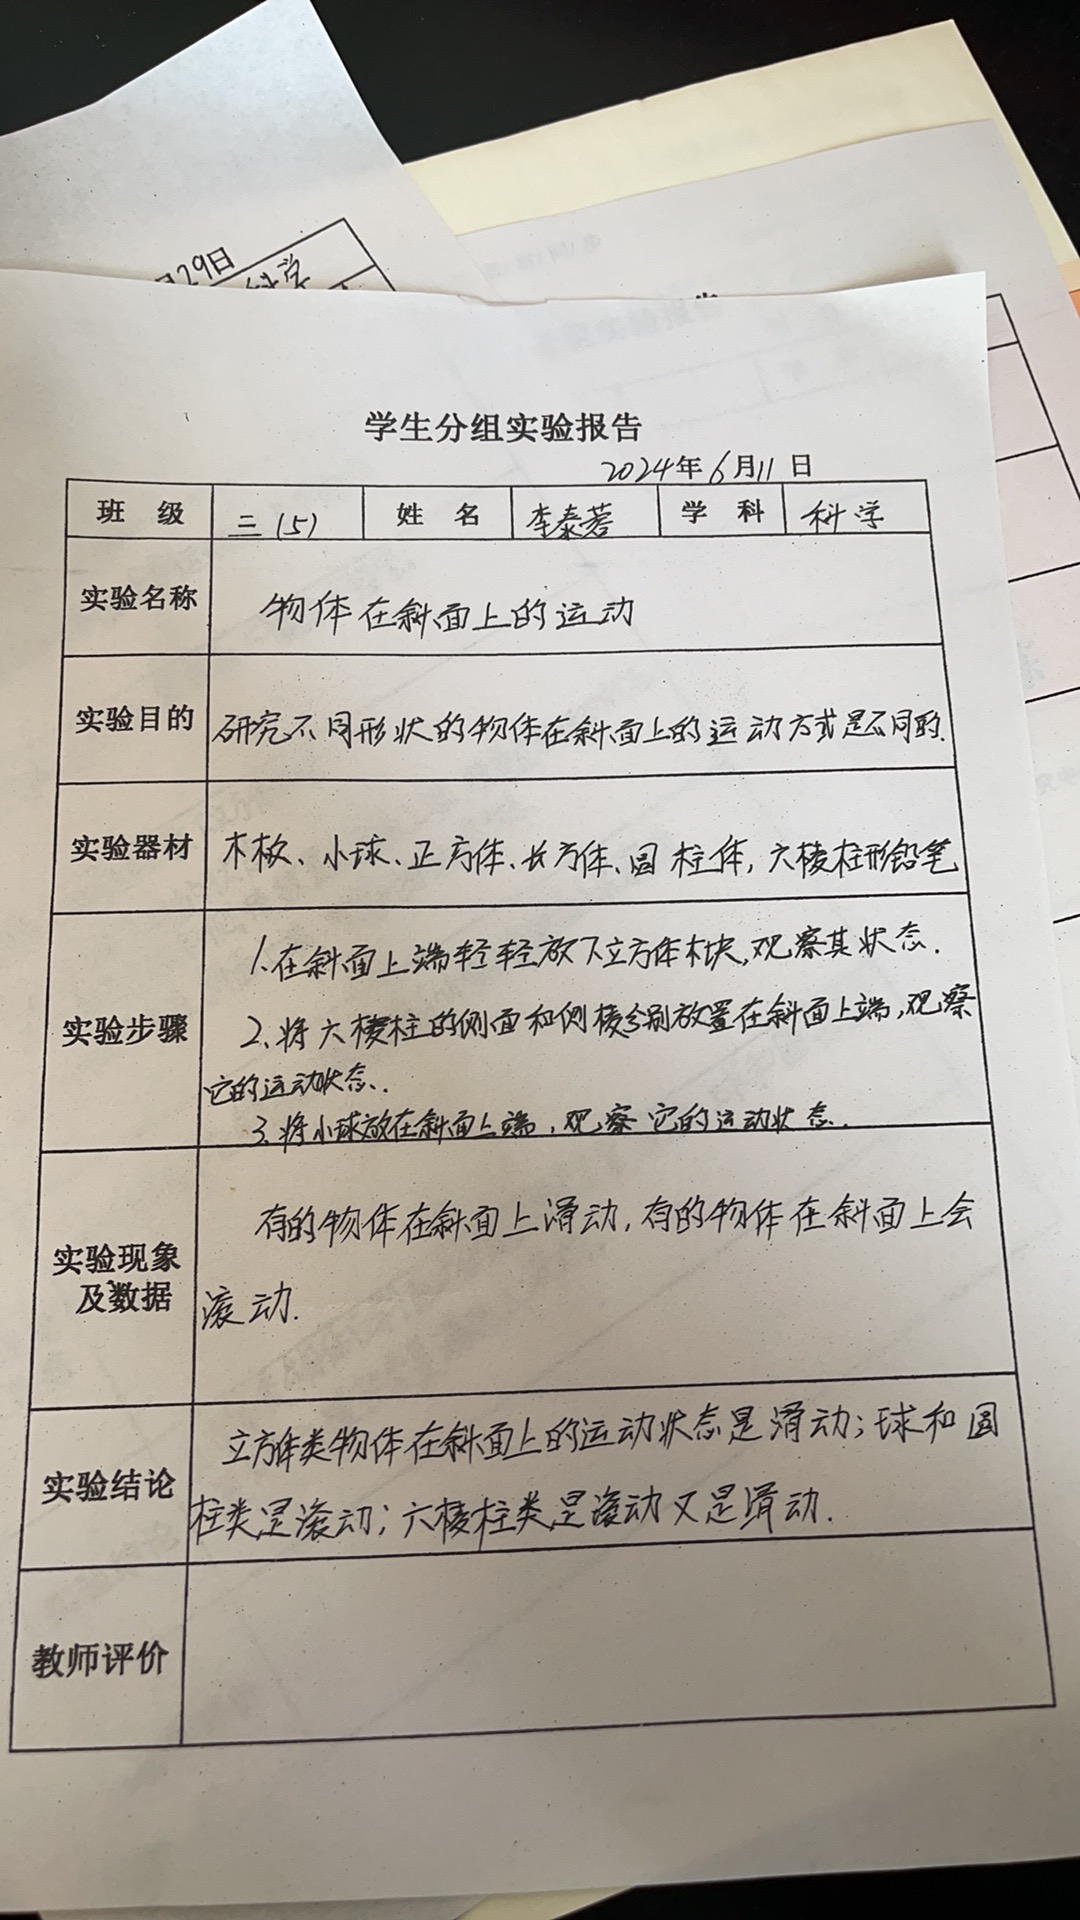 29日
科学
学生分组实验报告
2024年6月11日
班 级 三(5) 姓 名 李泰蓉 学 科 科学
实验名称 物体在斜面上的运动
实验目的 研究不同形状的物体在斜面上的运动方式是不同的.
实验器材 木板、小球、正方体、长方体、圆柱体,六棱柱形铅笔
实验步骤
1.在斜面上端轻轻放下立方体木块,观察其状态.
2、将六棱柱的侧面和侧棱分别放置在斜面上端,观察
它的运动状态.
3、将小球放在斜面上端,观察它的运动状态.
实验现象
及数据
有的物体在斜面上滑动,有的物体在斜面上会
滚动.
实验结论
立方体类物体在斜面上的运动状态是滑动;球和圆
柱类是滚动;六棱柱类是滚动又是滑动.
教师评价